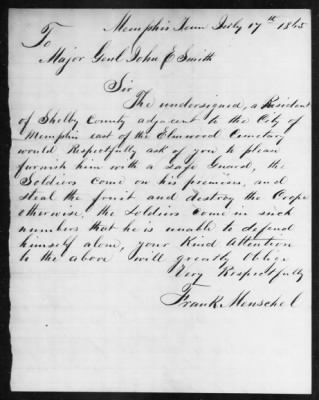 Memphis Tenn July 17th 1865
To
Major Genl John E Smith
Sir
The undersigned, a Resident
of Shelby County adjacent to the City of
Memphis east of the Elmwood Cemetary
would Respectfully ask of you to pleas
furnish him with a safe Guard, the
Soldiers come on his premises, and
steal the fruit and destroy the Crops
otherwise, the Soldiers come in such
numbers that he is unable to defend
himself alone, your Kind Attention
to the above will greatly Oblige
Very Respectfully
Frank Menschel